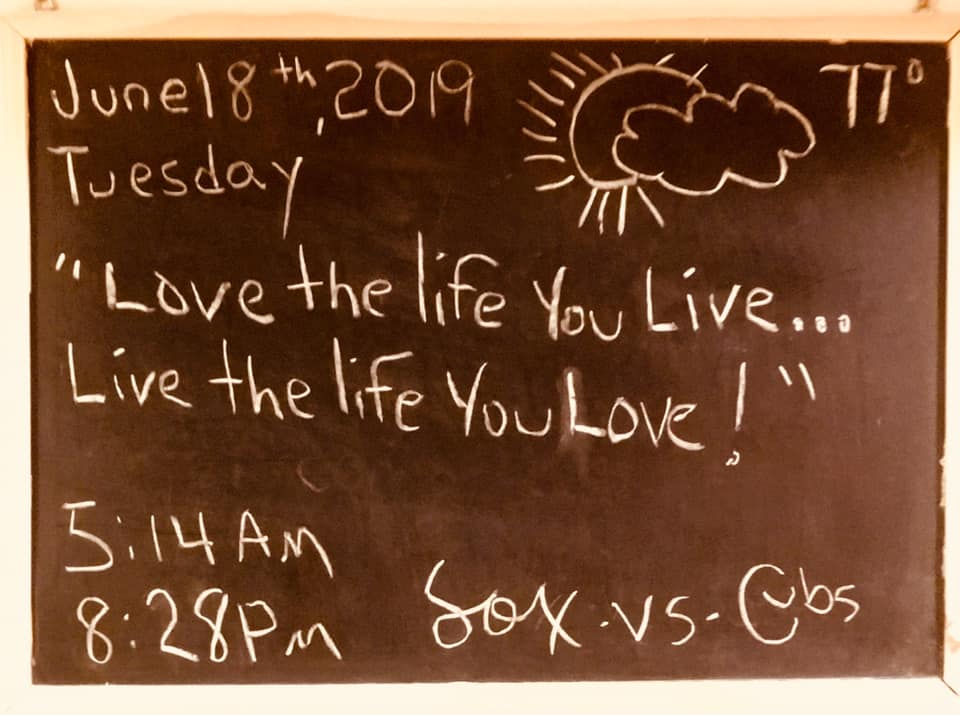 June 18th, 2019
77°
Tuesday
"Love the life You Live...
Live the life You Love!"
5:14 AM
8:28 PM
Sox -vs- Cubs